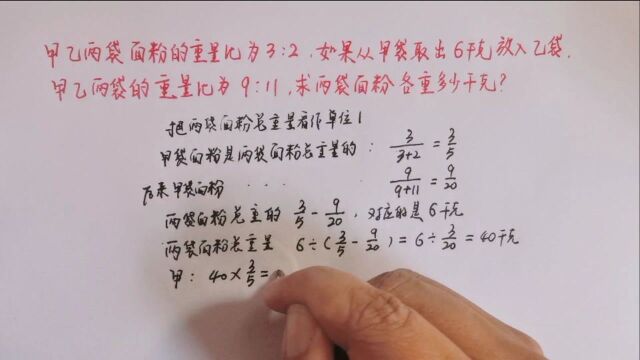 甲乙两袋面粉的重量比为3:2,如果从甲袋取出6千克放入乙袋.
甲乙两袋的重量比为9:11,求两袋面粉各重多少千克?
把两袋面粉总重量看作单位1
甲袋面粉是两袋面粉总重量的: 3/(3+2) = 3/5
后来甲袋面粉 . . . . 9/(9+11) = 9/20
两袋面粉总重的 3/5 - 9/20, 对应的是6千克
两袋面粉总重量 6÷(3/5 - 9/20) = 6÷3/20 = 40千克
甲: 40×3/5=